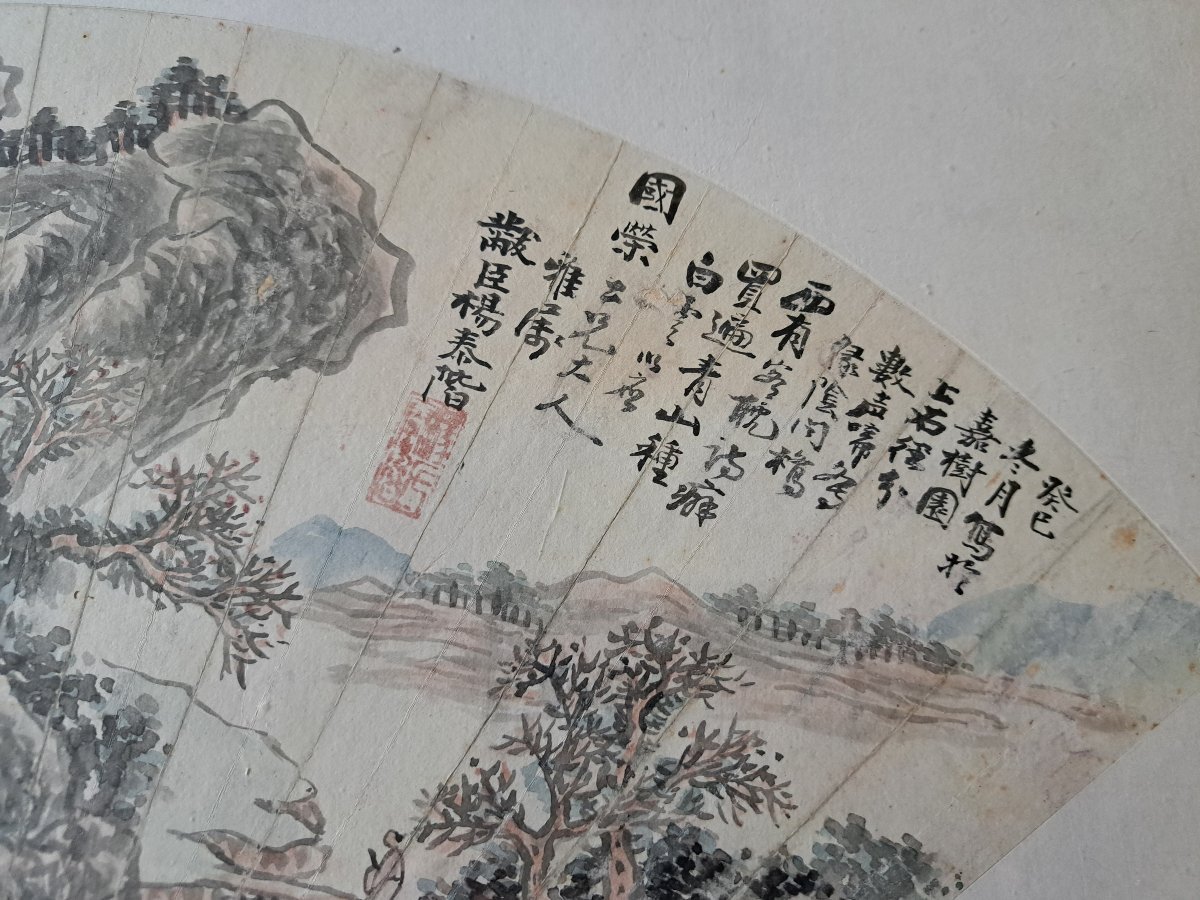 癸巳
冬月寫於
嘉樹園
上石徑分
數声啼鳥
綠陰闻橋
西有客耽詩癖
買遍青山種
白雲以應
國榮仁兄大人
雅屬
黻臣楊泰偕